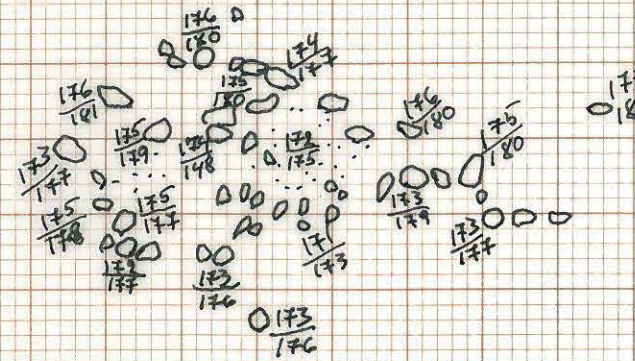 176
180
174
177
175
180
176
181
176
180
175
180
175
179
148
173
177
175
175
178
175
177
173
179
173
177
177
171
173
173
176
173
176